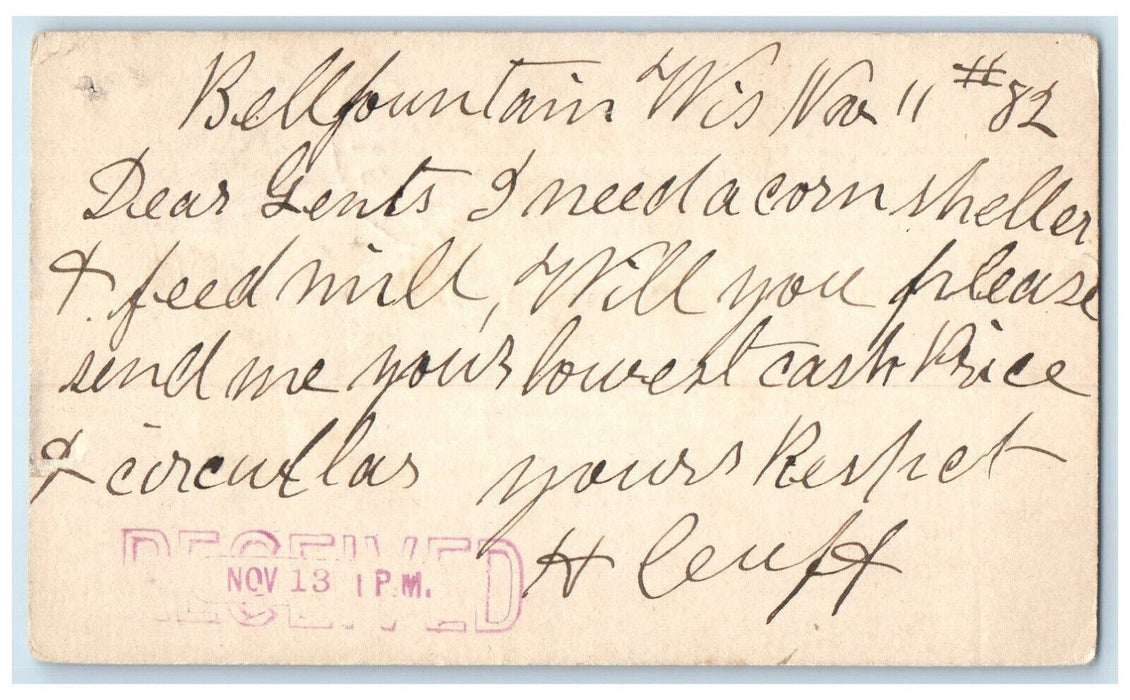 Bellfountain Wis Nov 11 # 82
Dear Gents I need a corn sheller
& feed mill, Will you please
send me your lowest cash Price
& circullar yours Respct
H
RECEIVED
NOV 13 1 P.M.